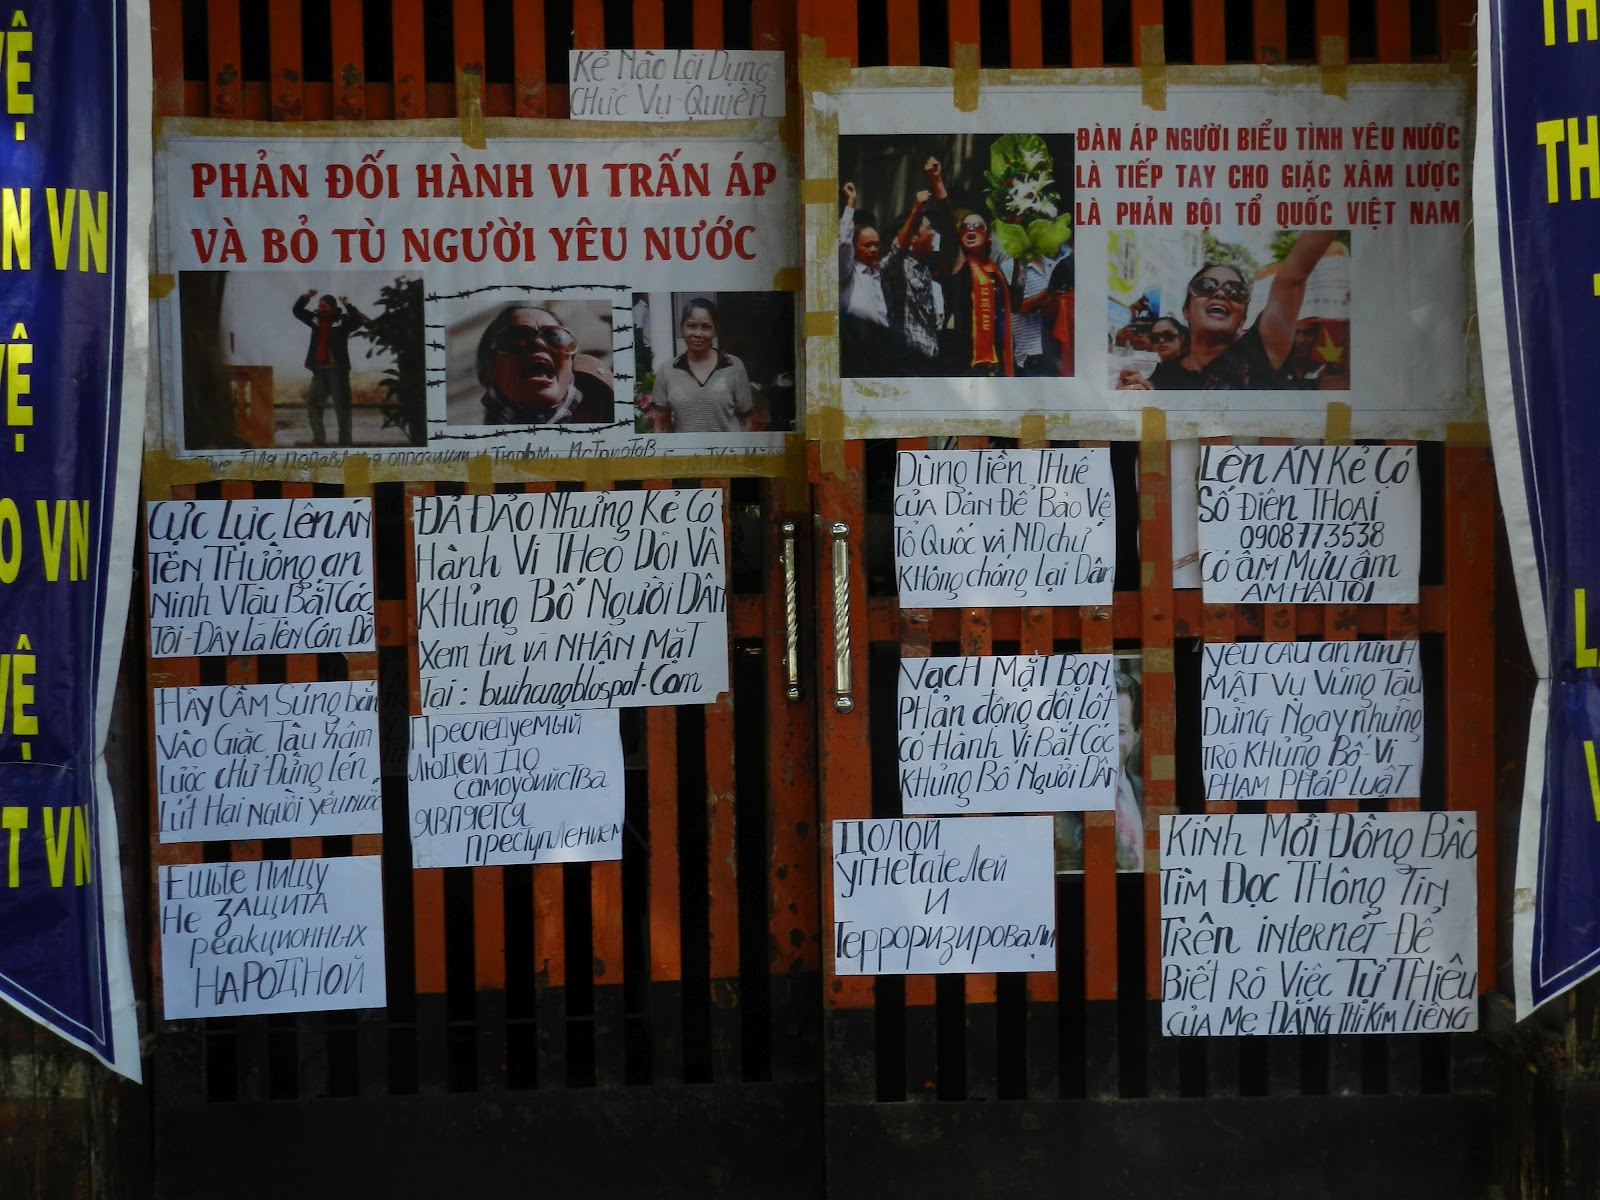 Ệ
N VN
VỆ
O VN
VỆ
T VN
Kẻ Nào Lợi Dụng
CHức Vụ-Quyền
PHẢN ĐỐI HÀNH VI TRẤN ÁP
VÀ BỎ TÙ NGƯỜI YÊU NƯỚC
оппозиции и Тюрьму
ĐÀN ÁP NGƯỜI BIỂU TÌNH YÊU NƯỚC
LÀ TIẾP TAY CHO GIẶC XÂM LƯỢC
LÀ PHẢN BỘI TỔ QUỐC VIỆT NAM
Cực Lực Lên ÁN
TÊN THưởng an
Ninh VTàu Bắt Cóc
Tôi-Đây Là Tên Côn Đồ
ĐẢ ĐẢO NHững Kẻ Có
HÀnh Vi THeo Dõi VÀ
KHủng Bố Người DÂN
Xem tin VÀ NHẬN MẶT
Tại : buihang.blospot.Com
HÃy CẦm Súng bắn
VÀo Giặc Tàu Xâm
Lược CHứ-Đừng Lén
Lút Hại Người yêu nước
Преследуемый
людей до
самоубийства
является
преступлением
Ешьте пищу
Не защита
реакционных
народной
Dùng Tiền THuế
CỦA DÂN ĐỂ BẢO VỆ
Tổ Quốc VÀ ND chứ
KHông chống Lại Dân
Lên ÁN Kẻ Có
Số Điện THoại
0908773538
Có ÂM Mưu ám
ÁM HẠI TÔI
VẠCH MẶT BỌN
PHản động đội lốt
Có HÀnh Vi BẮt CÓc
KHủng Bố Người DÂN
Yêu CẦu an ninh
MẬT Vụ Vũng TÀu
DừNG Ngay NHững
TRÒ KHủng Bố-Vi
PHẠM PHÁP LUẬT
Долой
угнетателей
и
Терроризировали
KíNH Mời Đồng BÀo
TÌM Đọc THông Tin
TRên iNTERNET Để
Biết Rõ Việc Tự THiêu
CỦA Mẹ ĐẶNG THị Kim LiêNg
TH